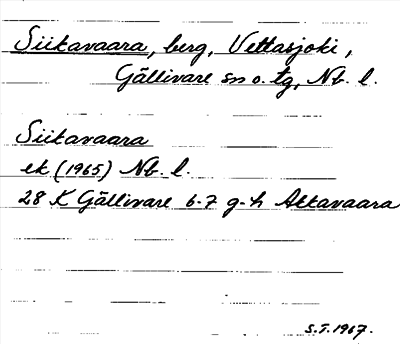 Siikavaara, berg, Vettasjoki,
Gällivare sn o. tg, Nb. l.
Siikavaara
ek (1965) Nb. l.
28 K Gällivare 6-7 g-h Akkavaara
S.T. 1967.